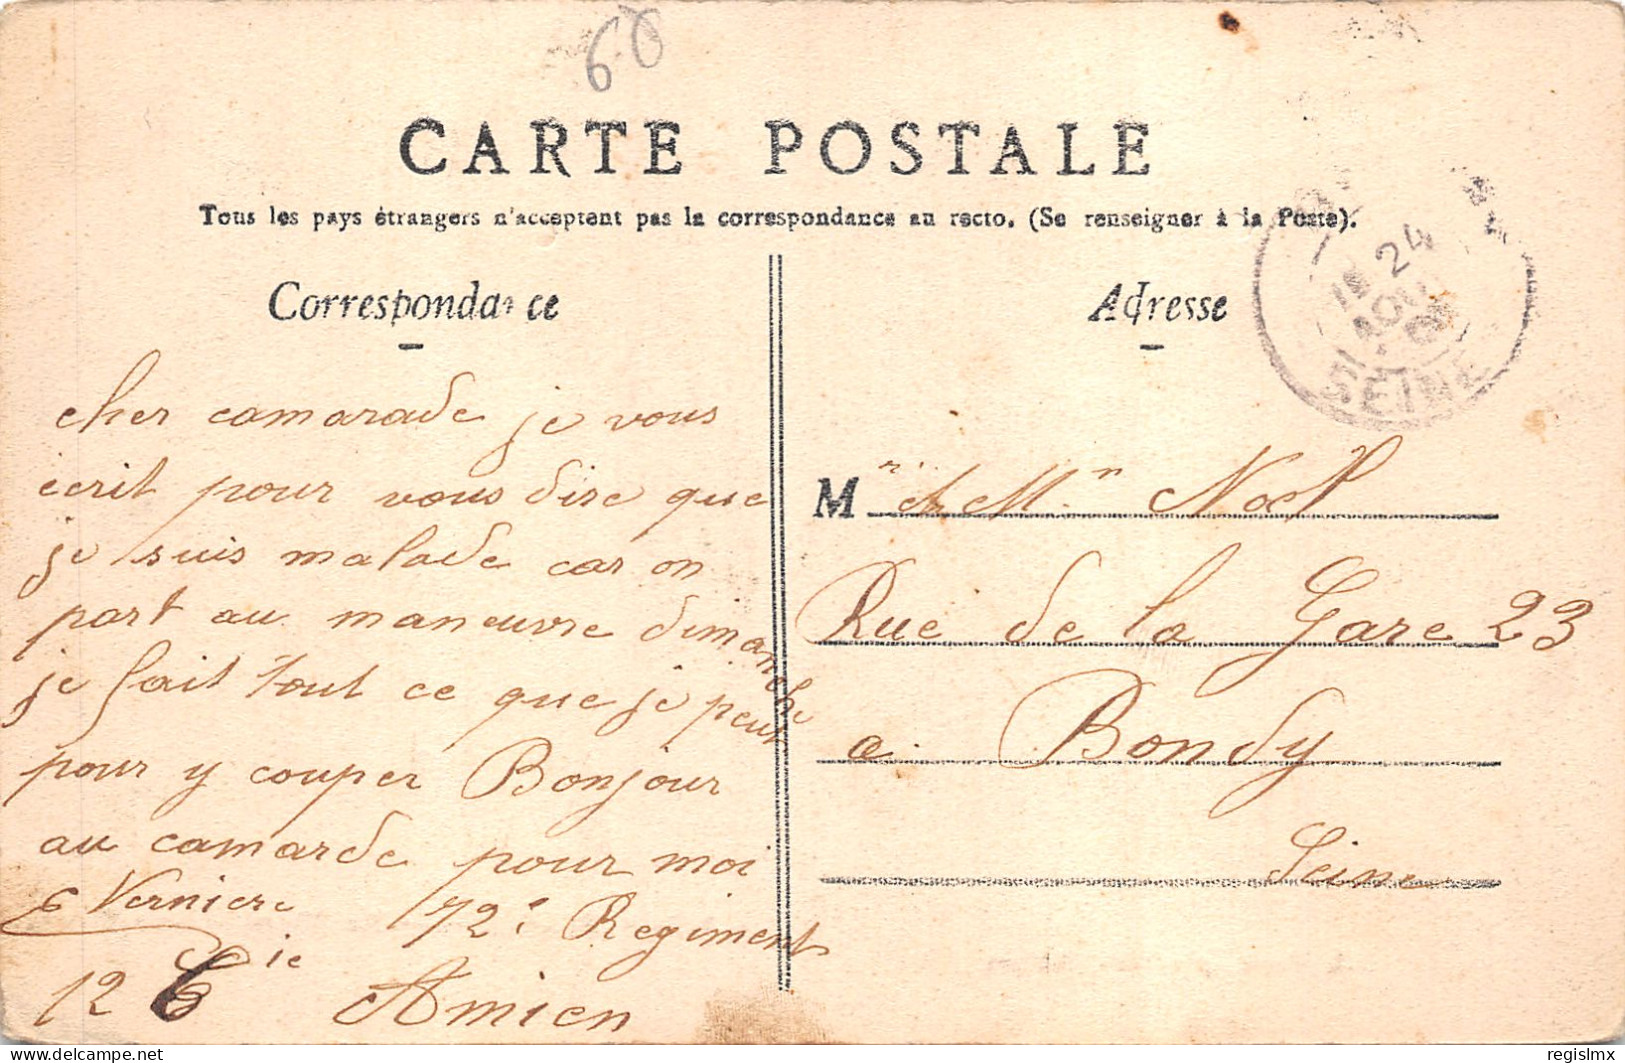 60
CARTE POSTALE
Tous les pays étrangers n'acceptent pas la correspondance au recto. (Se renseigner à la Poste).
Correspondance
cher camarade je vous
écrit pour vous dire que
je suis malade car on
part au maneuvre dimanche
je fait tout ce que je peut
pour y couper Bonjour
au camarde pour moi
E Verniere 72e Regiment
12 Cie Amien
Adresse
24
AOU
SEINE
M r et Mm Noel
Rue de la Gare 23
a Bondy
Seine
delcampe.net
regislmx